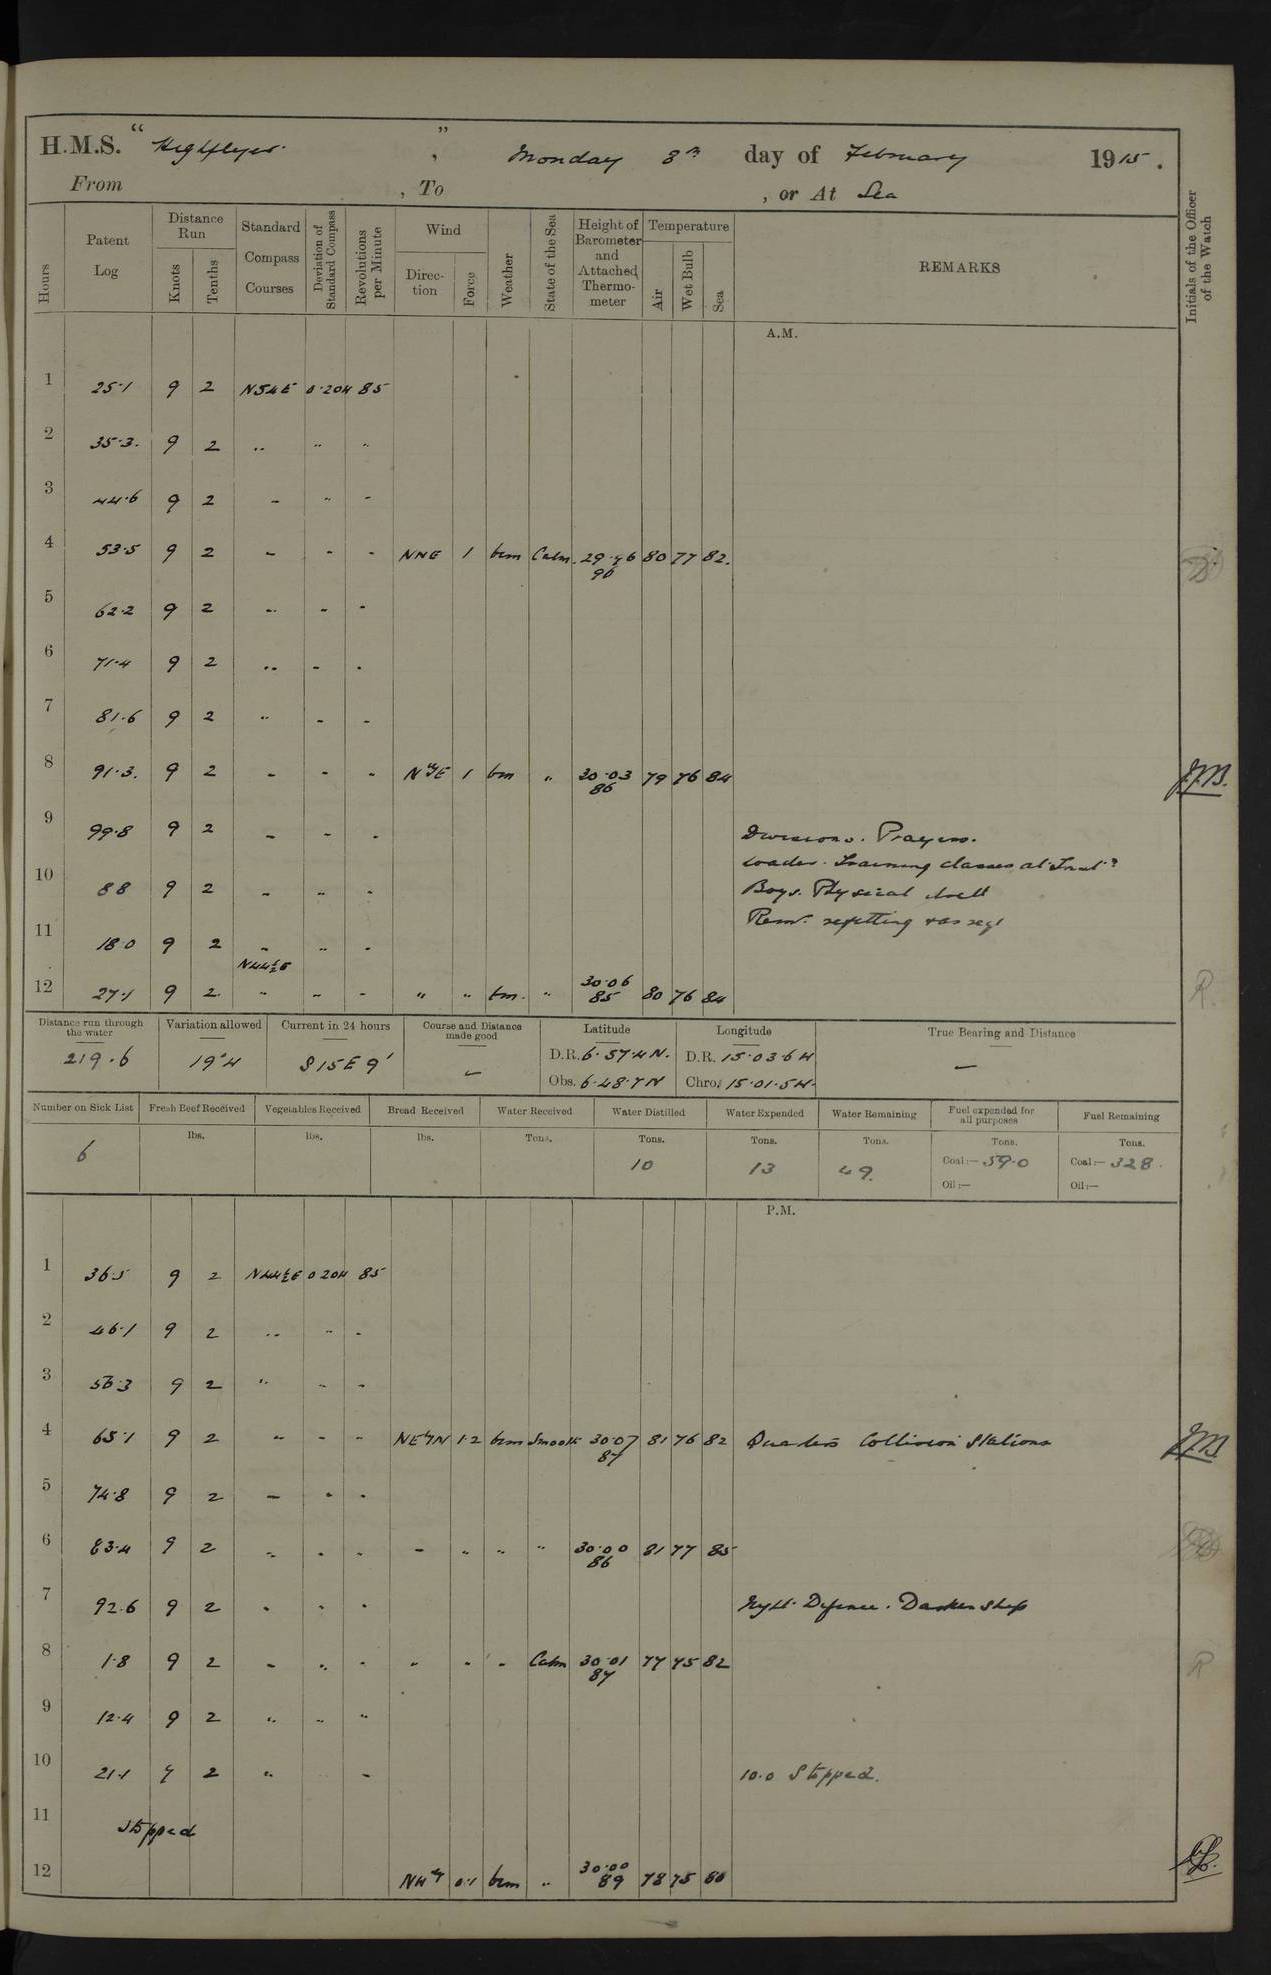 H.M.S. "Highflyer", Monday 8th day of February 1915.
From , To , or At Sea
Hours
Patent Log
Distance Run
Knots
Tenths
Standard Compass Courses
Deviation of Standard Compass
Revolutions per Minute
Wind
Direction
Force
Weather
State of the Sea
Height of Barometer and Attached Thermometer
Temperature
Air
Wet Bulb
Sea
REMARKS
Initials of the Officer of the Watch
A.M.
1 25·1 9 2 N54E 0·20W 85
2 35·3 9 2 " " "
3 44·6 9 2 - " -
4 53·5 9 2 - - - NNE 1 bcm Calm 80 77 82
5 62·2 9 2 " - -
6 71·4 9 2 " - -
7 81·6 9 2 " - -
8 91·3 9 2 - - - NyE 1 bm " 30·03 86 79 76 84 J.J.B.
9 99·8 9 2 - - - Divisions. Prayers.
Loader. Training classes at Inst:
10 8 8 9 2 - " - Boys. Physical drill
Rem. refitting
11 18·0 9 2 - " -
N44½E
12 27·1 9 2 " - - " " bm " 30·06 85 80 76 84 R.
Distance run through the water
219·6
Variation allowed
19°W
Current in 24 hours
S15E 9'
Course and Distance made good
-
Latitude
D.R. 6·57·4N.
Obs. 6·48·7N
Longitude
D.R. 15·03·6W
Chro. 15·01·5W.
True Bearing and Distance
-
Number on Sick List
6
Fresh Beef Received
lbs.
Vegetables Received
lbs.
Bread Received
lbs.
Water Received
Tons.
Water Distilled
Tons.
10
Water Expended
Tons.
13
Water Remaining
Tons.
49.
Fuel expended for all purposes
Tons.
Coal:- 59·0
Oil:-
Fuel Remaining
Tons.
Coal:- 328.
Oil:-
P.M.
1 36·5 9 2 N44½E 0·20W 85
2 46·1 9 2 " " -
3 56·3 9 2 " " -
4 65·1 9 2 " - - NEyN 1·2 bcm Smooth 30·07 87 81 76 82 Quarters Collision Stations J.J.B
5 74·8 9 2 - " -
6 83·4 9 2 " - - - " " " 30·00 86 81 77 85
7 92·6 9 2 " " " Night Defence. Darken Ship
8 1·8 9 2 - " - " - - Calm 30·01 87 77 75 82 R
9 12·4 9 2 " " "
10 21·1 7 2 " - 10·0 Stopped.
11 Stopped
12 NWy 0·1 bcm " 30·00 89 78 75